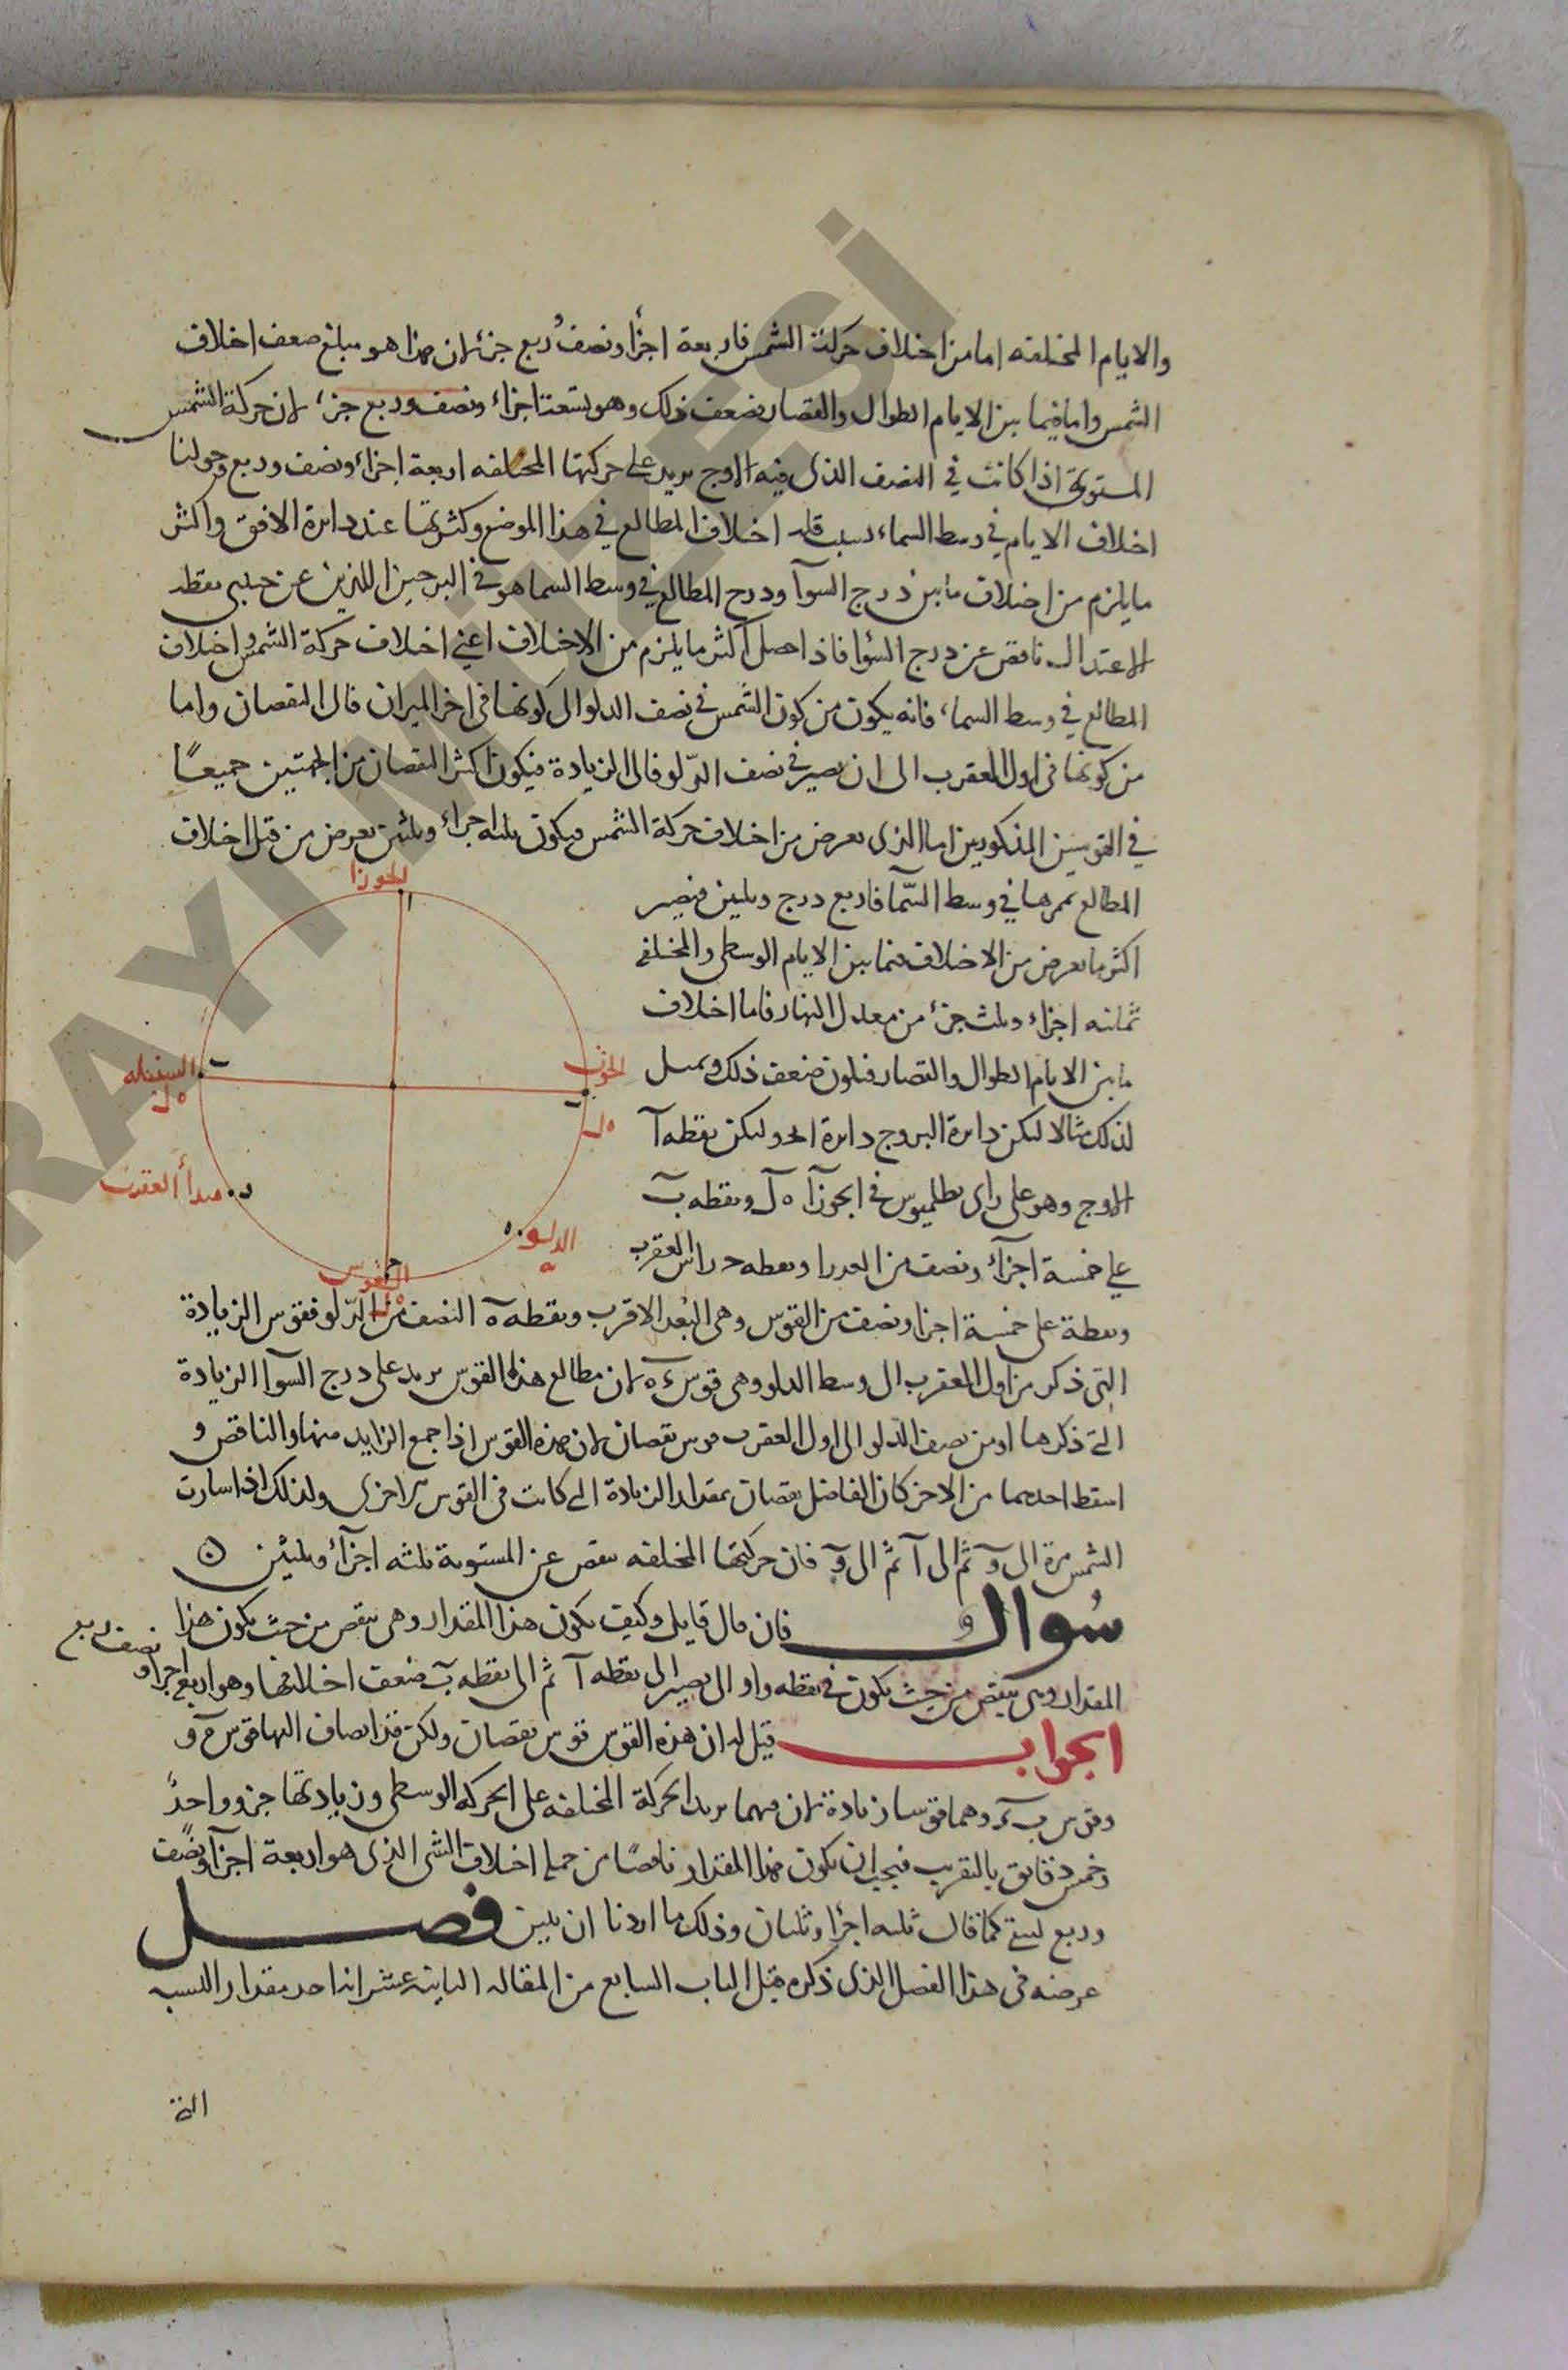 والايام المختلفه اما من اختلاف حركة الشمس فاربعة اجزاء ونصف وربع جزء لان هذا هو مبلغ ضعف اختلاف
الشمس واما فيما بين الايام الطوال والقصار بضعف ذلك وهو تسعة اجزاء ونصف وربع جزء لان حركة الشمس
المستوية اذا كانت في النصف الذى فيه الاوج يزيد على حركتها المختلفه اربعة اجزاء ونصف وربع وحولنا
اختلاف الايام في وسط السماء بسبب قله اختلاف المطالع في هذا الموضع وكثرتها عند دايرة الافق واكثر
ما يلزم من اختلاف ما بين درج السوآ ودرج المطالع في وسط السما هو في البرجين اللذين عن جنبى نقطه
الاعتدال ناقص عن درج السوا فاذا حصل اكثر ما يلزم من الاختلاف اعنى اختلاف حركة الشمس واختلاف
المطالع في وسط السماء فانه يكون من كون الشمس في نصف الدلو الى كونها فى اخر الميزان فالى النقصان واما
من كونها فى اول العقرب الى ان يصير في نصف الدلو فالى الزيادة فيكون اكثر النقصان من الجهتين جميعًا
في القوسين المذكورين اما الذى يعرض من اختلاف حركة الشمس فيكون ثلثه اجزاء وثلثين يعرض من قبل اختلاف
المطالع بممرها في وسط السّمآ فاربع درج وثلثين فيصير
اكثر ما يعرض من الاختلاف فيما بين الايام الوسطى والمختلفه
ثمانيه اجزاء وثلث جزء من معدل النهار فاما اختلاف
ما بين الايام الطوال والقصار فيكون ضعف ذلك ونمثل
لذلك مثالا ليكن دايرة البروج دايرة ابجد وليكن نقطه آ
الاوج وهو على راى بطلميوس في الجوزآ ه ل ونقطه بَ
على خمسة اجزآء ونصف من العذرا ونقطه د راس العقرب
ونقطة على خمسة اجزا ونصف من القوس وهى البعد الاقرب ونقطه ه النصف من الدلو فقوس الزيادة
التى ذكر من اول العقرب الى وسط الدلو وهى قوس ءه لان مطالع هذه القوس يزيد على درج السوآ الزيادة
التى ذكرها ومن نصف الدلو الى اول العقرب قوس نقصان لان هذه القوس اذا جمع الزايد منها والناقص و
اسقط احدهما من الاخر كان الفاضل نقصان بمقدار الزيادة التى كانت فى القوس الاخرى ولذلك اذا سارت
الشمس من ة الى وَ ثم الى آ ثم الى وَ فان حركتها المختلفه ينقص عن المستوية ثلثه اجزآء وثلثين
سُوال فان قال قايل وكيف يكون هذا المقدار وهى ينقص من حيث يكون هذا
المقدار وهى ينقص من حيث يكون في نقطه و او الى يصير الى نقطه آ ثم الى نقطه بَ ضعف اختلافها وهو اربع اجزا و نصف وربع
الجواب قيل له ان هذه القوس قوس نقصان ولكن قد انضاف اليها قوس ه و
وقوس ب د وهما قوسا زيادة لان فيهما يزيد الحركة المختلفه على الحركه الوسطى وزيادتها جزو واحدً
وخمس دقايق بالتقريب فيجب ان يكون هذا المقدار ناقصًا من جملة اختلاف الشى الذى هو اربعة اجزآ ونصف
وربع ليبقى كما قال ثلثه اجزا وثلثان وذلك ما اردنا ان نبين فصل
غرضه فى هذا الفصل الذى ذكره قبل الباب السابع من المقاله الثانية عشر اذا احد مقدار النسبه
الجوزا
ا
السنبله
ه ل
ب
الحوت
ه ل
مبدأ العقرب
د
الدلو
ه
القوس
ه ل